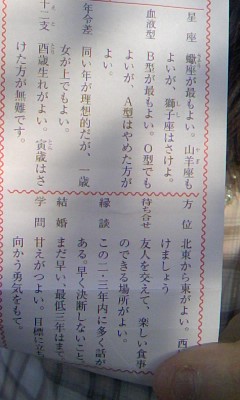 星座 蠍座が最もよい。山羊座も
よいが、獅子座はさけよ。
血液型 B型が最もよい。O型でも
よいが、A型はやめた方が
よい。
年令差 同い年が理想的だが、一歳
女が上でもよい。
十二支 酉歳生れがよい。寅歳はさ
けた方が無難です。
方位 北東から東がよい。西
けましょう
待ち合せ 友人を交えて、楽しい食事
のできる場所がよい。
縁談 この一・三年内に多く話が
ある。早く決断しないこと。
結婚 まだ早い、最低三年はまて
学問 甘えがつよい。目標に立
向かう勇気をもて。